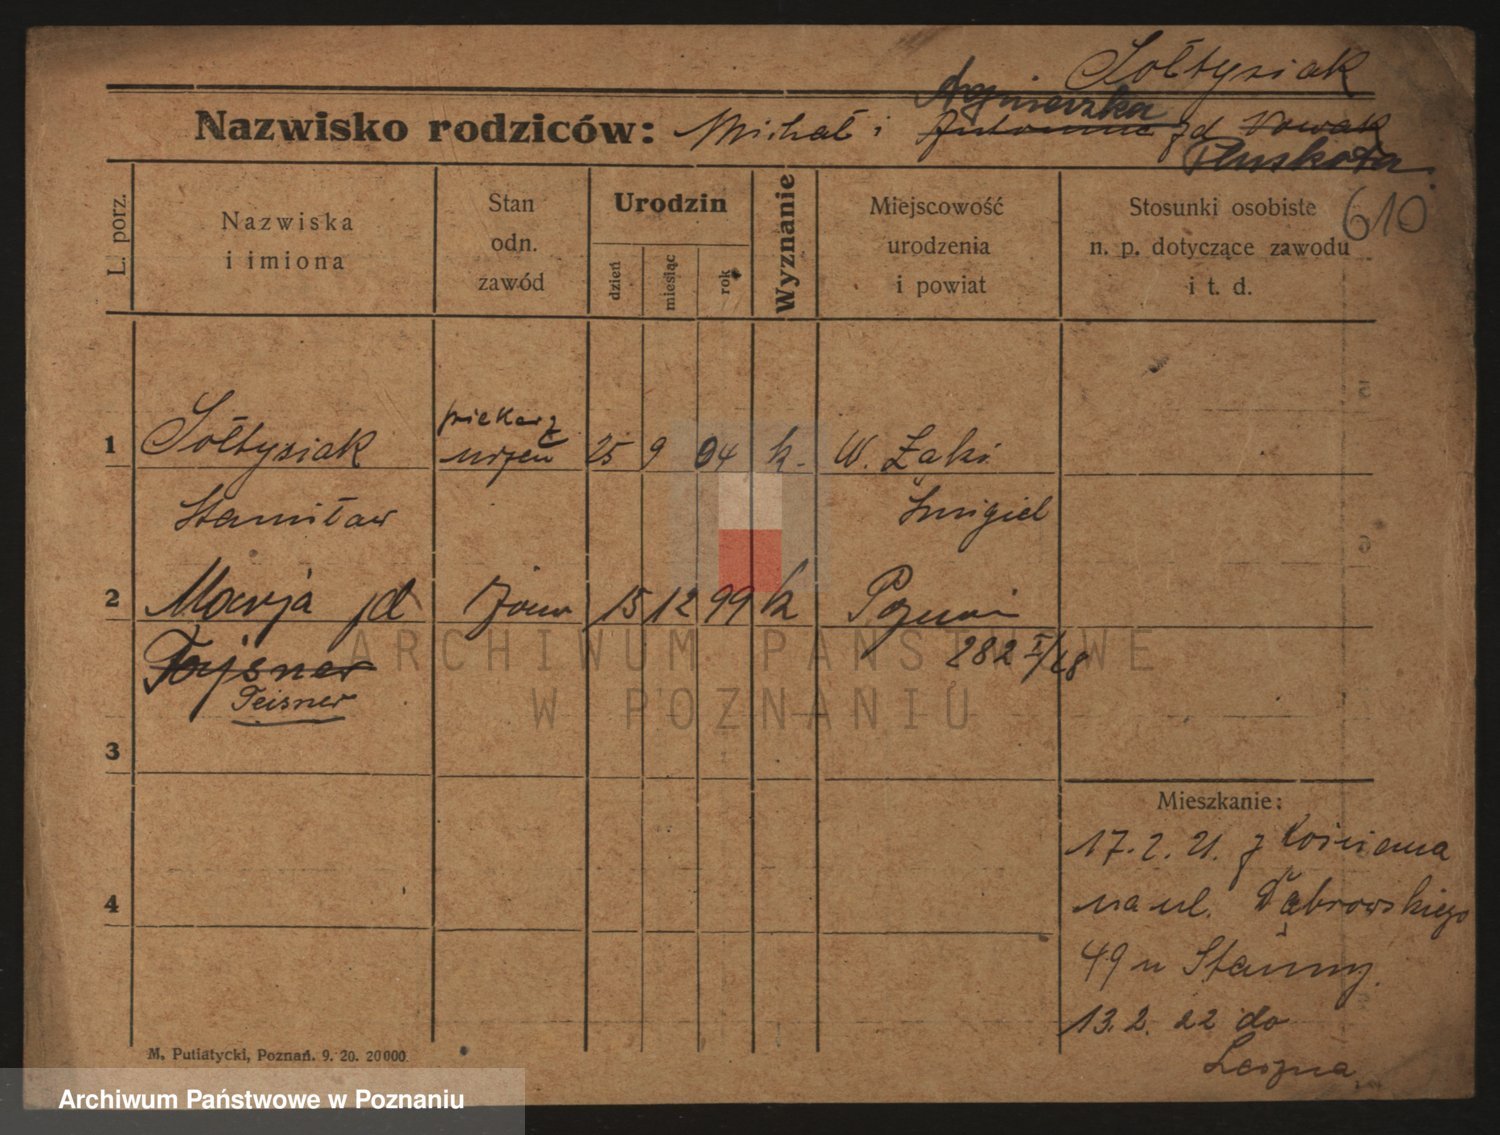 Sołtysiak
Agnieszka
Nazwisko rodziców: Michał i Antonina zd Nowak
Pluskota
610
L. porz.
Nazwiska
i imiona
Stan
odn.
zawód
Urodzin
dzień
miesiąc
rok
Wyznanie
Miejscowość
urodzenia
i powiat
Stosunki osobiste
n. p. dotyczące zawodu
i t. d.
piekarz
1 Sołtysiak uczeń 25 9 04 k. W. Łąki
Stanisław Śmigiel
2 Marja zd żona 15 12 99 k Poznań
Tajsner 282 I/28
Teisner
3
Mieszkanie:
17. 2. 21. z Kościana
4
na ul. Dąbrowskiego
49 u Stanny
13. 2. 22 do
Leszna
M. Putiatycki, Poznań. 9. 20. 20000
ARCHIWUM PAŃSTWOWE
W POZNANIU
Archiwum Państwowe w Poznaniu